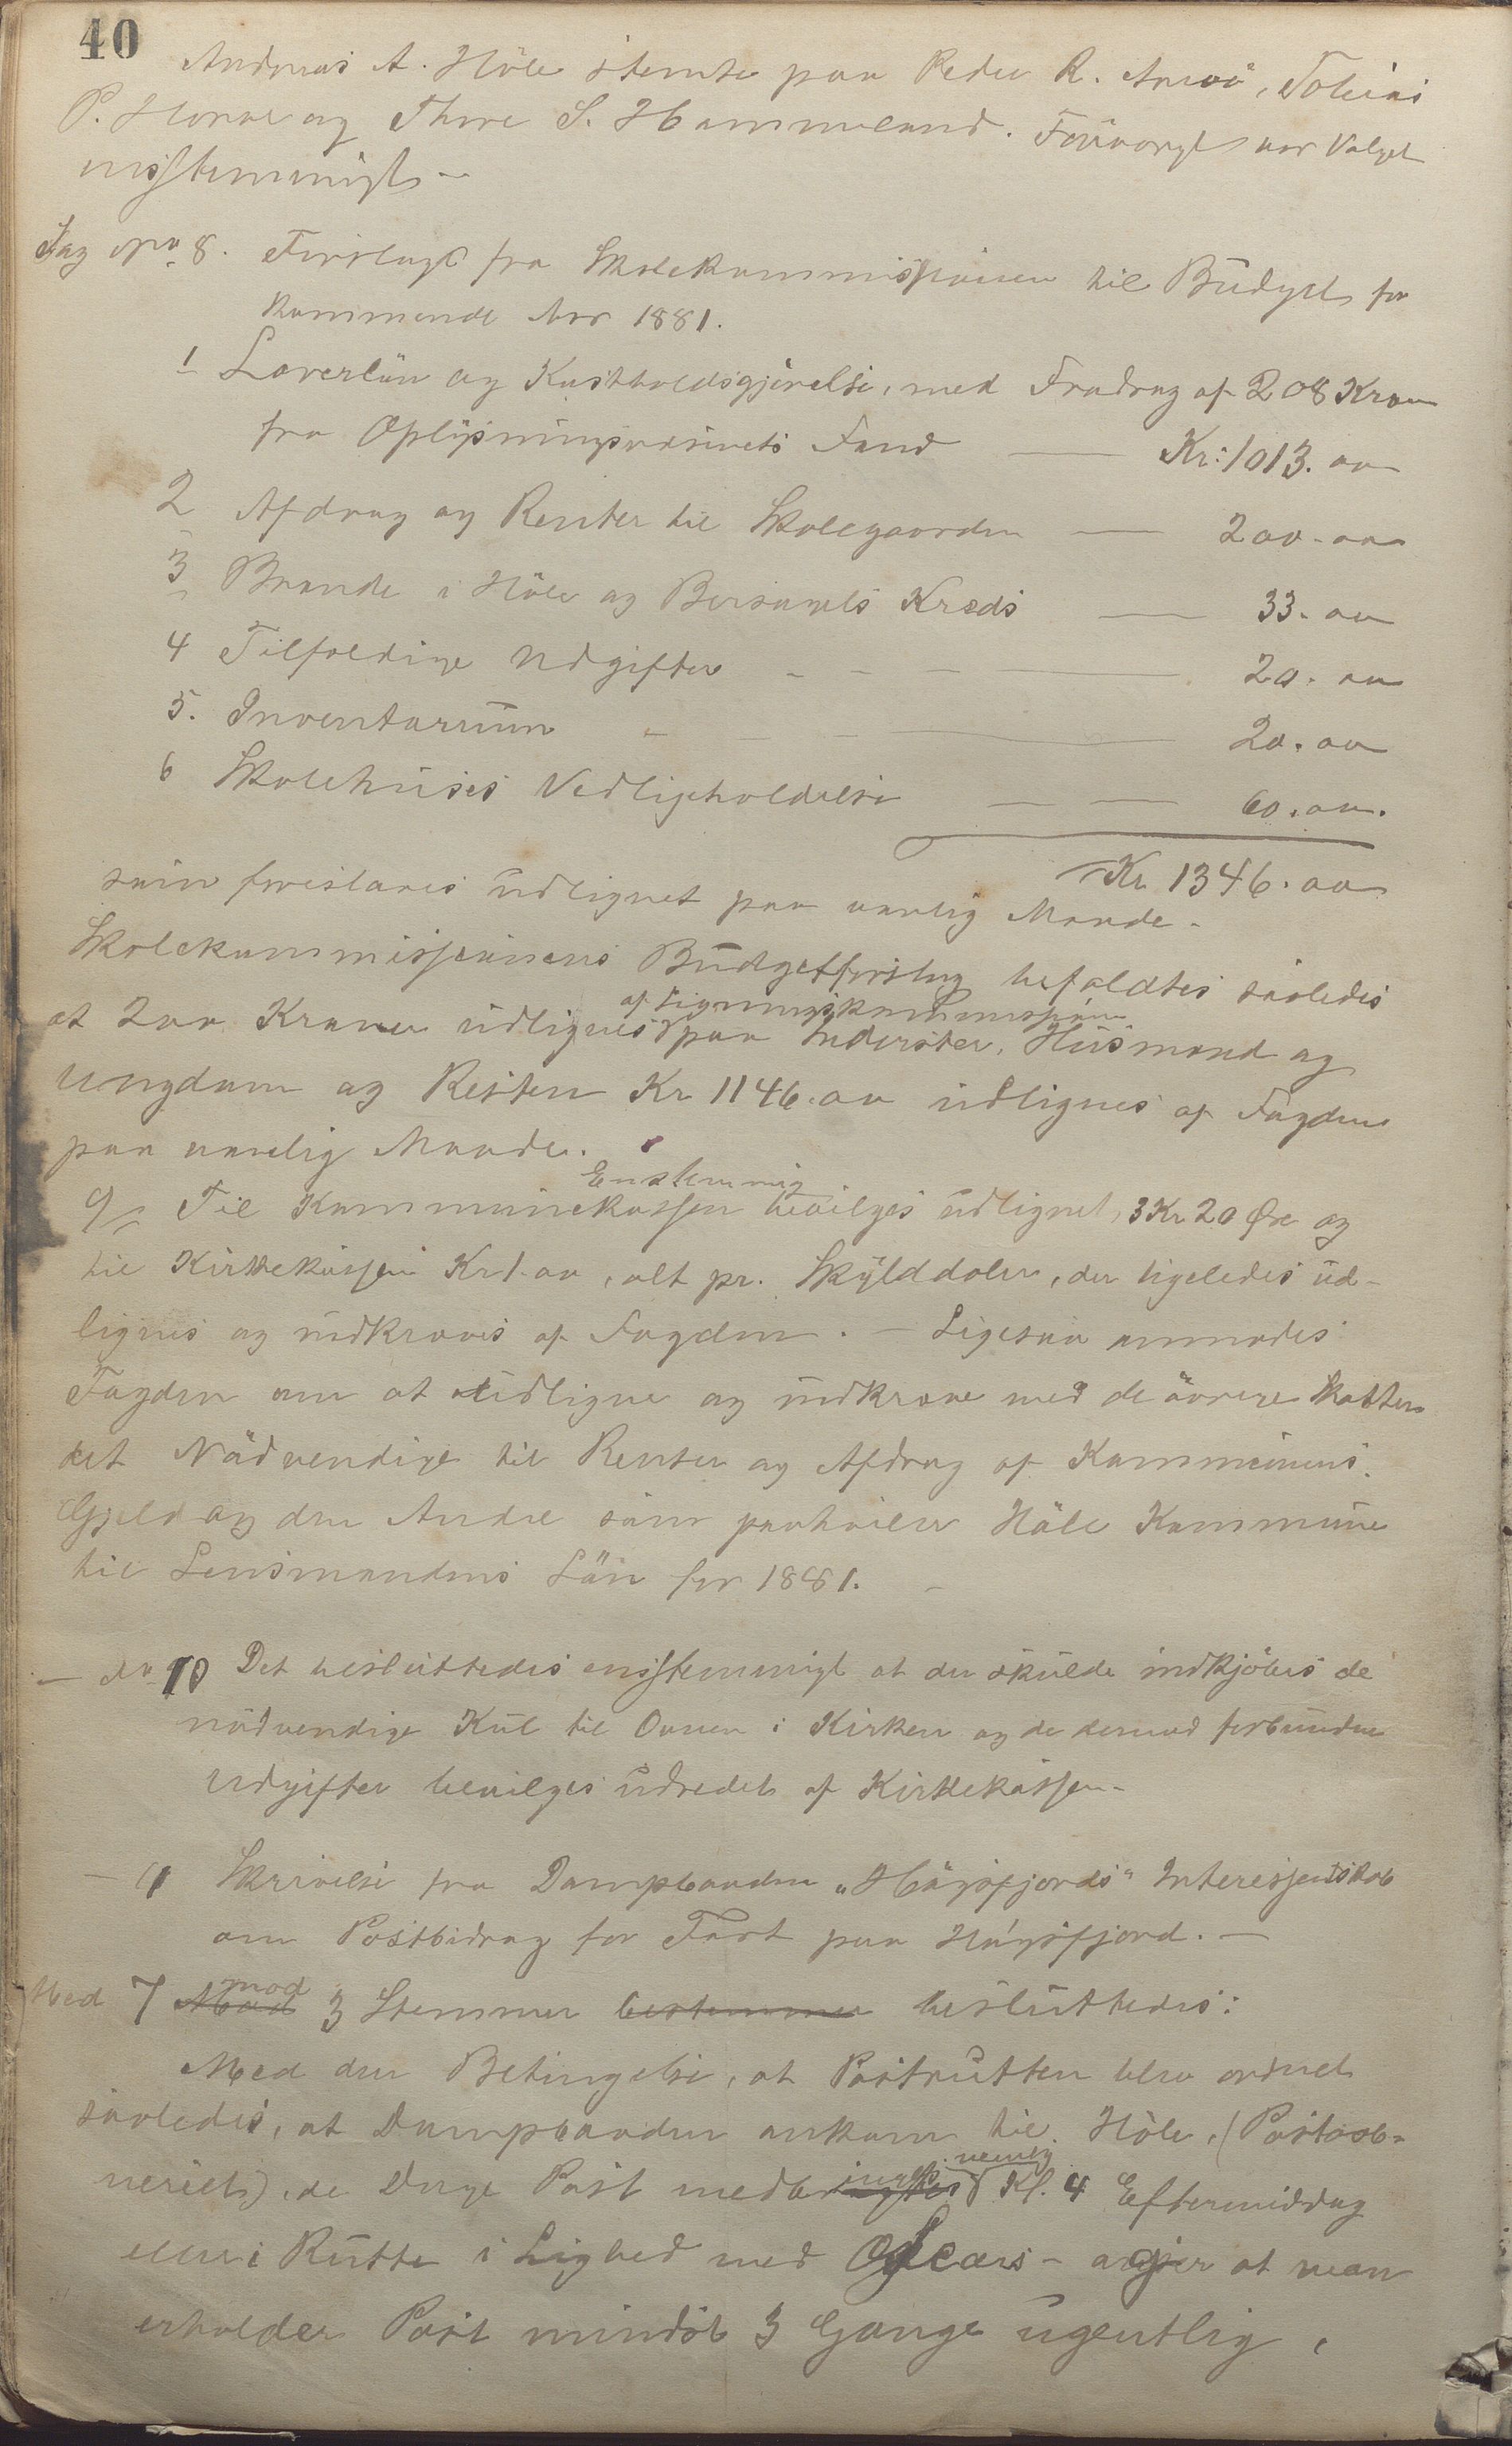 40
Andreas A. Höle stemte paa Peder R. , Tobias
P. og Thore S. Hammeland. Forövrigt var Valget
enstemmigt
Sag No 8. Forslag fra Skolekommissionen til Budget for
kommende Aar 1881.
1 Lærerlön og Kostholdsgjörelse, med Fradrag af 208 Kroner
fra Oplysningsvæsenets Fond — Kr: 1013. oo
2 Afdrag og Renter til Skolegaarden — 200. oo
3 Brænde i Höle og Bersagels Kreds — 33. oo
4 Tilfældige Udgifter - - — 20. oo
5. Inventarium - - - — 20. oo
6 Skolehuses Vedligeholdelse — — 60. oo.
Kr 1346. oo
som foreslaaes udlignet paa vanlig Maade.
Skolekommissionens Budgetforslag befaldtes saaledes
af Ligningskommissionen
at 200 Kroner udlignes paa Inderster, Husmænd og
Ungdom og Resten Kr 1146. oo udlignes af Fogden
paa vanlig Maade.
Enstemmig
9/ Til Kommunekassen bevilges udlignet, 3 Kr 20 Øre og
til Kirkekassen Kr 1. oo, alt pr. Skylddaler, der ligeledes ud-
lignes og indkræves af Fogden. — Ligesaa anmodes
Fogden om at udligne og indkræve med de övrige Skatter
det Nödvendige til Renter og Afdrag af Kommunens
Gjeld og den Andel som paahviler Höle Kommune
til Lensmandens Lön for 1881. -
— do 10 Det besluttedes enstemmigt at der skulde indkjöbes de
nödvendige Kul til Ovnen i Kirken og de dermed forbundne
Udgifter bevilges udredet af Kirkekassen-
— 11 Skrivelse fra Dampbaaden „Högsfjords" Interessentskab
om Postbidrag for Fart paa Högsfjord. —
mod
Med 7 Mod 3 Stemmer bestemmes besluttedes:
Med den Betingelse, at Postrutten blev ordnet
saaledes, at Dampbaaden ankom til Höle, (Postaab-
nemlig
neriet), de Dage Post medbringes Kl. 4 Eftermiddag
eller i Rutte i Lighed med Oscars - at man
erholder Post mindst 3 Gange ugentlig,